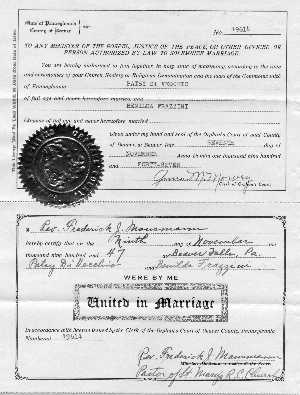 State of Pennsylvania
County of Beaver
No. 19614
TO ANY MINISTER OF THE GOSPEL, JUSTICE OF THE PEACE, OR OTHER OFFICER OR
PERSON AUTHORIZED BY LAW TO SOLEMNIZE MARRIAGE.
You are hereby authorized to join together in holy state of matrimony, according to the rites
and ceremonies of your Church, Society or Religious Denomination and the laws of the Commonwealth
of Pennsylvania
PATSY
of full age and never heretofore married, and
FRAZZINI
of full age and never heretofore married
Given under my hand and seal of the Orphans Court of said County
of Beaver at Beaver this SEVENTH day of
NOVEMBER Anno Domini one thousand nine hundred
and FORTY-SEVEN
Clerk of Orphans Court
I, Rev. Frederick J.
hereby certify that on the Ninth day of November
thousand nine hundred and 47 at Beaver Falls, Pa.
Patsy and
WERE BY ME
United in Marriage
In accordance with license issued by the Clerk of the Orphans Court of Beaver County, Pennsylvania
Numbered 19614
Rev. Frederick J.
Pastor of St. Mary R.C. Church